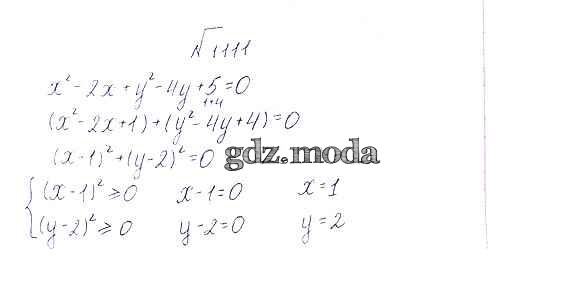 № 1111
x² - 2x + y² - 4y + 5 = 0
1+4
(x² - 2x + 1) + (y² - 4y + 4) = 0
(x - 1)² + (y - 2)² = 0 gdz.moda
{(x - 1)² ≥ 0 x - 1 = 0 x = 1
(y - 2)² ≥ 0 y - 2 = 0 y = 2